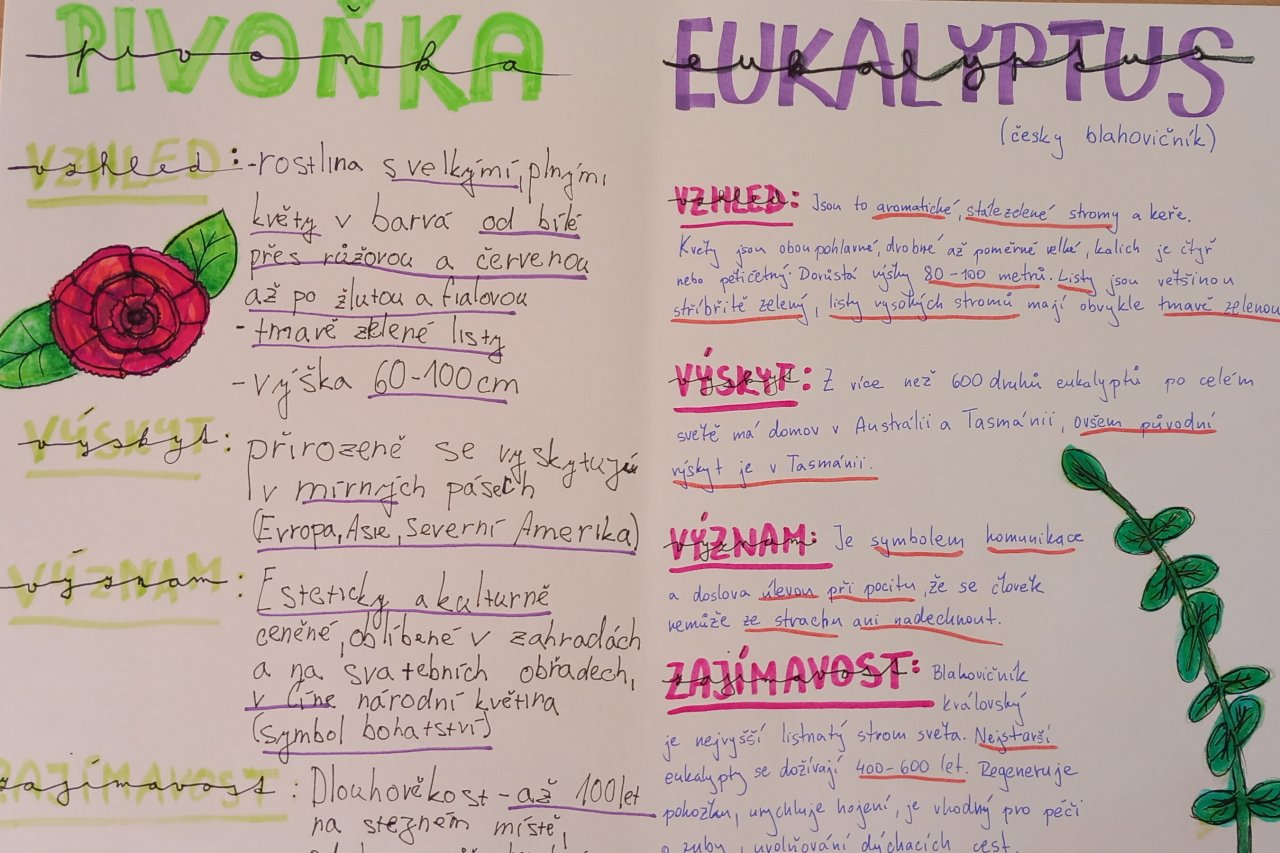 PIVOŇKA
pivoňka
VZHLED
vzhled: - rostlina s velkými, plnými
květy v barvá od bílé
přes růžovou a červenou
až po žlutou a fialovou
- tmavě zelené listy
- výška 60-100 cm
VÝSKYT
výskyt: přirozeně se vyskytují
v mírných pásech
(Evropa, Asie, Severní Amerika)
VÝZNAM
význam: Esteticky a kulturně
ceněné, oblíbené v zahradách
a na svatebních obřadech,
v Číně národní květina
(symbol bohatství)
ZAJÍMAVOST
zajímavost: Dlouhověkost - až 100 let
na stejném místě,
EUKALYPTUS
eukalyptus
(česky blahovičník)
VZHLED: Jsou to aromatické, stálezelené stromy a keře.
vzhled
Květy jsou obou pohlavné, drobné až poměrné velké, kalich je čtyř
nebo pětičetný. Dorůstá výšky 80-100 metrů. Listy jsou většinou
stříbřitě zelený, listy vysokých stromů mají obvykle tmavě zelenou
VÝSKYT: Z více než 600 druhů eukalyptů po celém
výskyt
světě má domov v Austrálii a Tasmánii, ovšem původní
výskyt je v Tasmánii.
VÝZNAM: Je symbolem komunikace
význam
a doslova úlevou při pocitu, že se člověk
nemůže ze strachu ani nadechnout.
ZAJÍMAVOST: Blahovičník
zajímavost
královský
je nejvyšší listnatý strom světa. Nejstarší
eukalypty se dožívají 400-600 let. Regeneruje
pokožku, urychluje hojení, je vhodný pro péči
o zuby, uvolňování dýchacích cest.